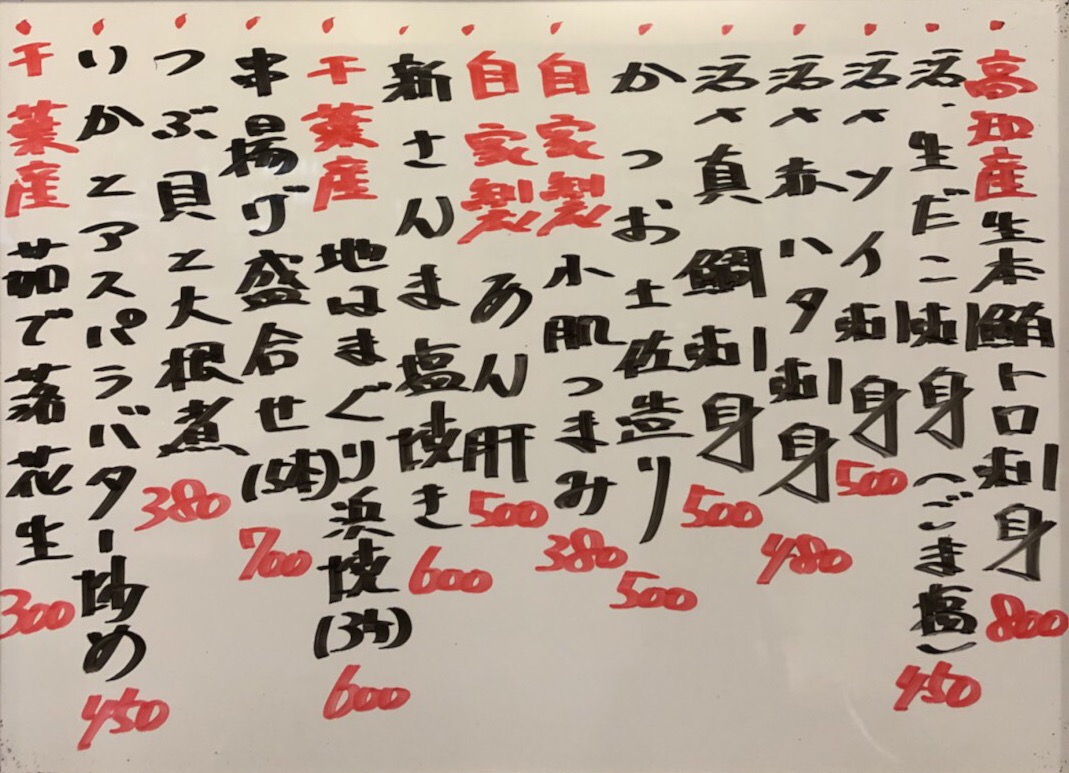 高知産生本鮪トロ刺身 800
活・生だこ刺身(ごま塩) 450
活〆ソイ刺身 500
活〆赤ハタ刺身 480
活〆真鯛刺身 500
かつお土佐造り 500
自家製小肌つまみ 380
自家製あん肝 500
新さんま塩焼き 600
千葉産地はまぐり浜焼(3ヶ) 600
串揚げ盛合せ(5本) 700
つぶ貝と大根煮 380
いかとアスパラバター炒め 450
千葉産茹で落花生 300